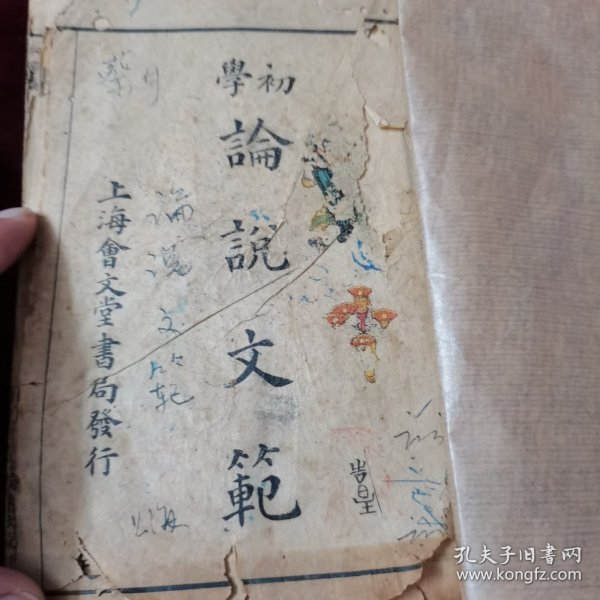 初學
論說文範
上海會文堂書局發行
論說文範
上海
孔夫子旧书网
www.kongfz.com